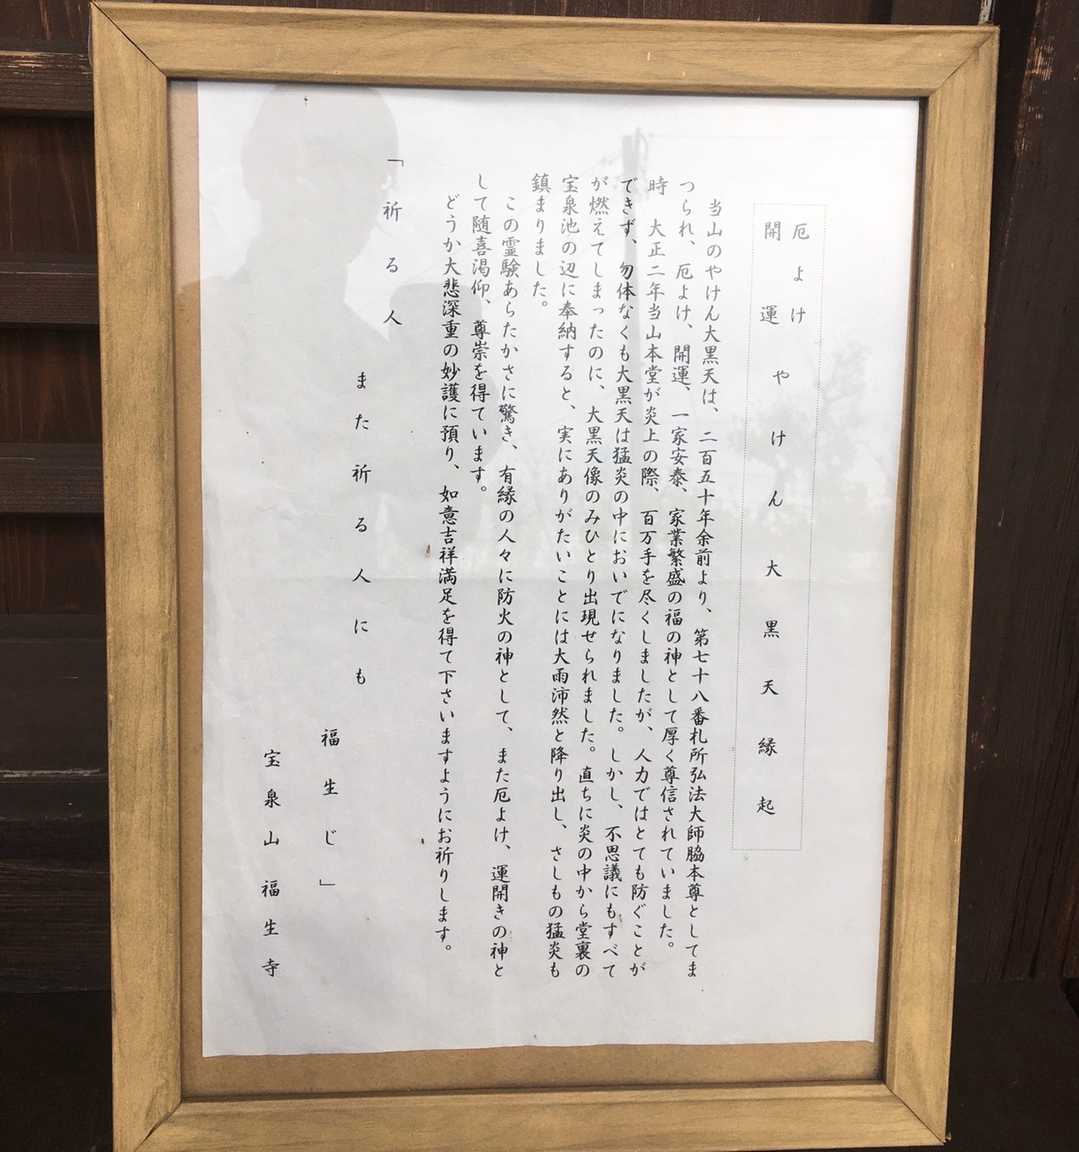 厄よけ
開運
やけん大黒天縁起
当山のやけん大黒天は、二百五十年余前より、第七十八番札所弘法大師脇本尊としてま
つられ、厄よけ、開運、一家安泰、家業繁盛の福の神として厚く尊信されていました。
時 大正二年当山本堂が炎上の際、百万手を尽くしましたが、人力ではとても防ぐことが
できず、勿体なくも大黒天は猛炎の中においでになりました。しかし、不思議にもすべて
が燃えてしまったのに、大黒天像のみひとり出現せられました。直ちに炎の中から堂裏の
宝泉池の辺に奉納すると、実にありがたいことには大雨沛然と降り出し、さしもの猛炎も
鎮まりました。
この霊験あらたかさに驚き、有縁の人々に防火の神として、また厄よけ、運開きの神と
して随喜渇仰、尊崇を得ています。
どうか大悲深重の妙護に預り、如意吉祥満足を得て下さいますようにお祈りします。
「祈る人
また祈る人にも
福生じ」
宝泉山 福生寺